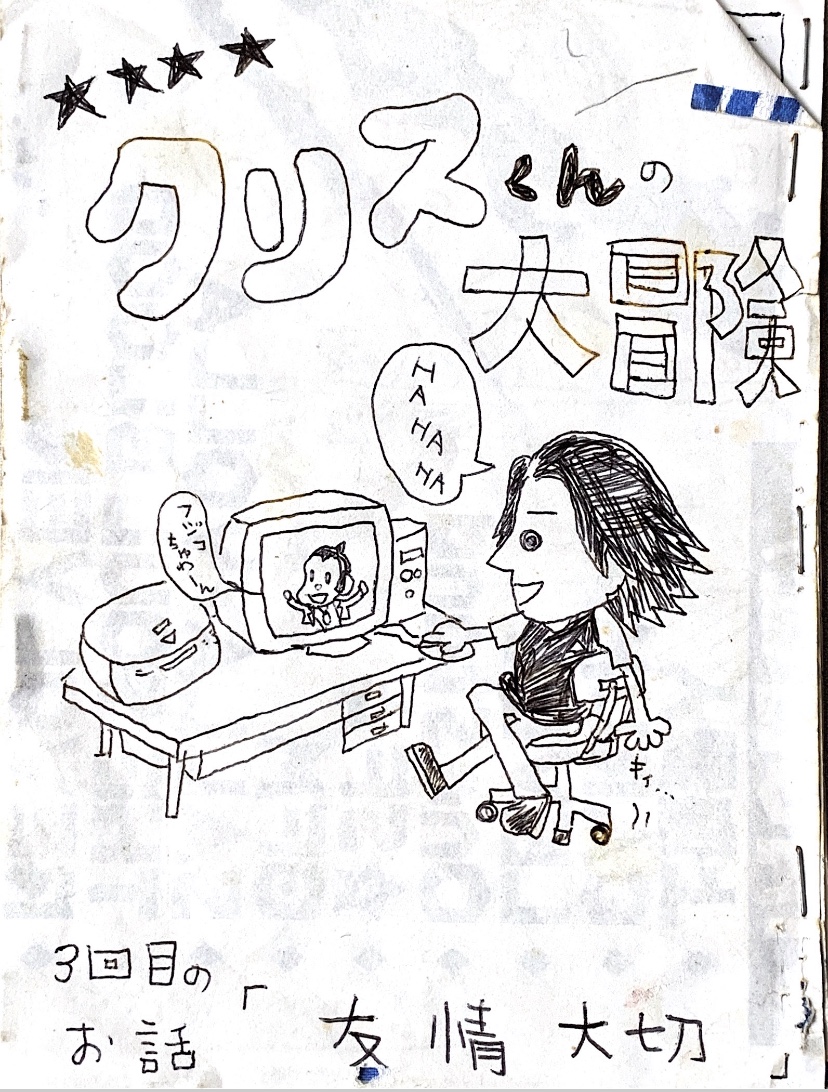 クリスくんの
大冒険
HA
HAHA
HA
フジコ
ちゃわーん
キィ…
3回目の
お話「友情大切」